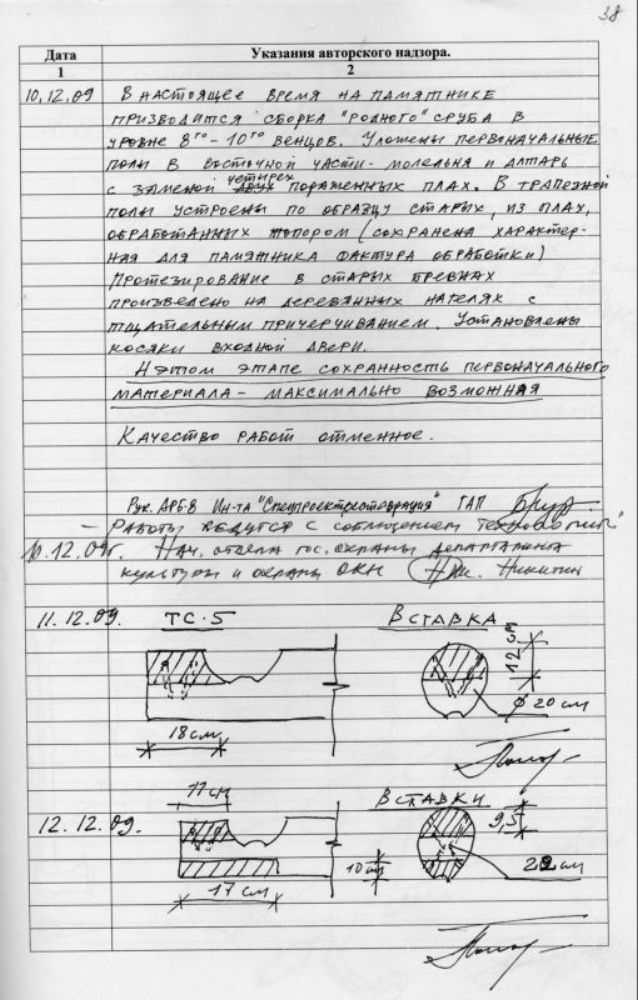 38
Дата Указания авторского надзора.
1 2
10.12.09 В настоящее время на памятнике
призводится сборка "родного" сруба в
уровне 8го - 10го венцов. Уложены первоначальные
полы в восточной части - молельня и алтарь
четырех
с заменой двух пораженных плах. В трапезной
полы устроены по образцу старых, из плах,
обработанных топором (сохранена характер-
ная для памятника фактура обработки)
Протезирование в старых бревнах
произведено на деревянных нагелях с
тщательным причерчиванием. Установлены
косяки входной двери.
Нэтом этапе сохранность первоначального
материала - максимально возможная
Качество работ отменное.
Рук. АРБ-8 Ин-та "Спецпроектреставрация" ГАП
- Работы ведутся с соблюдением технологий
10.12.09г. Нач. отдела гос. охраны департамента
культуры и охраны ОКН Никитин
11.12.09. ТС-5 Вставка
12 см
ф 20 см
18 см
11 см
Вставки
12.12.09. 9,5
10 см 22 см
17 см